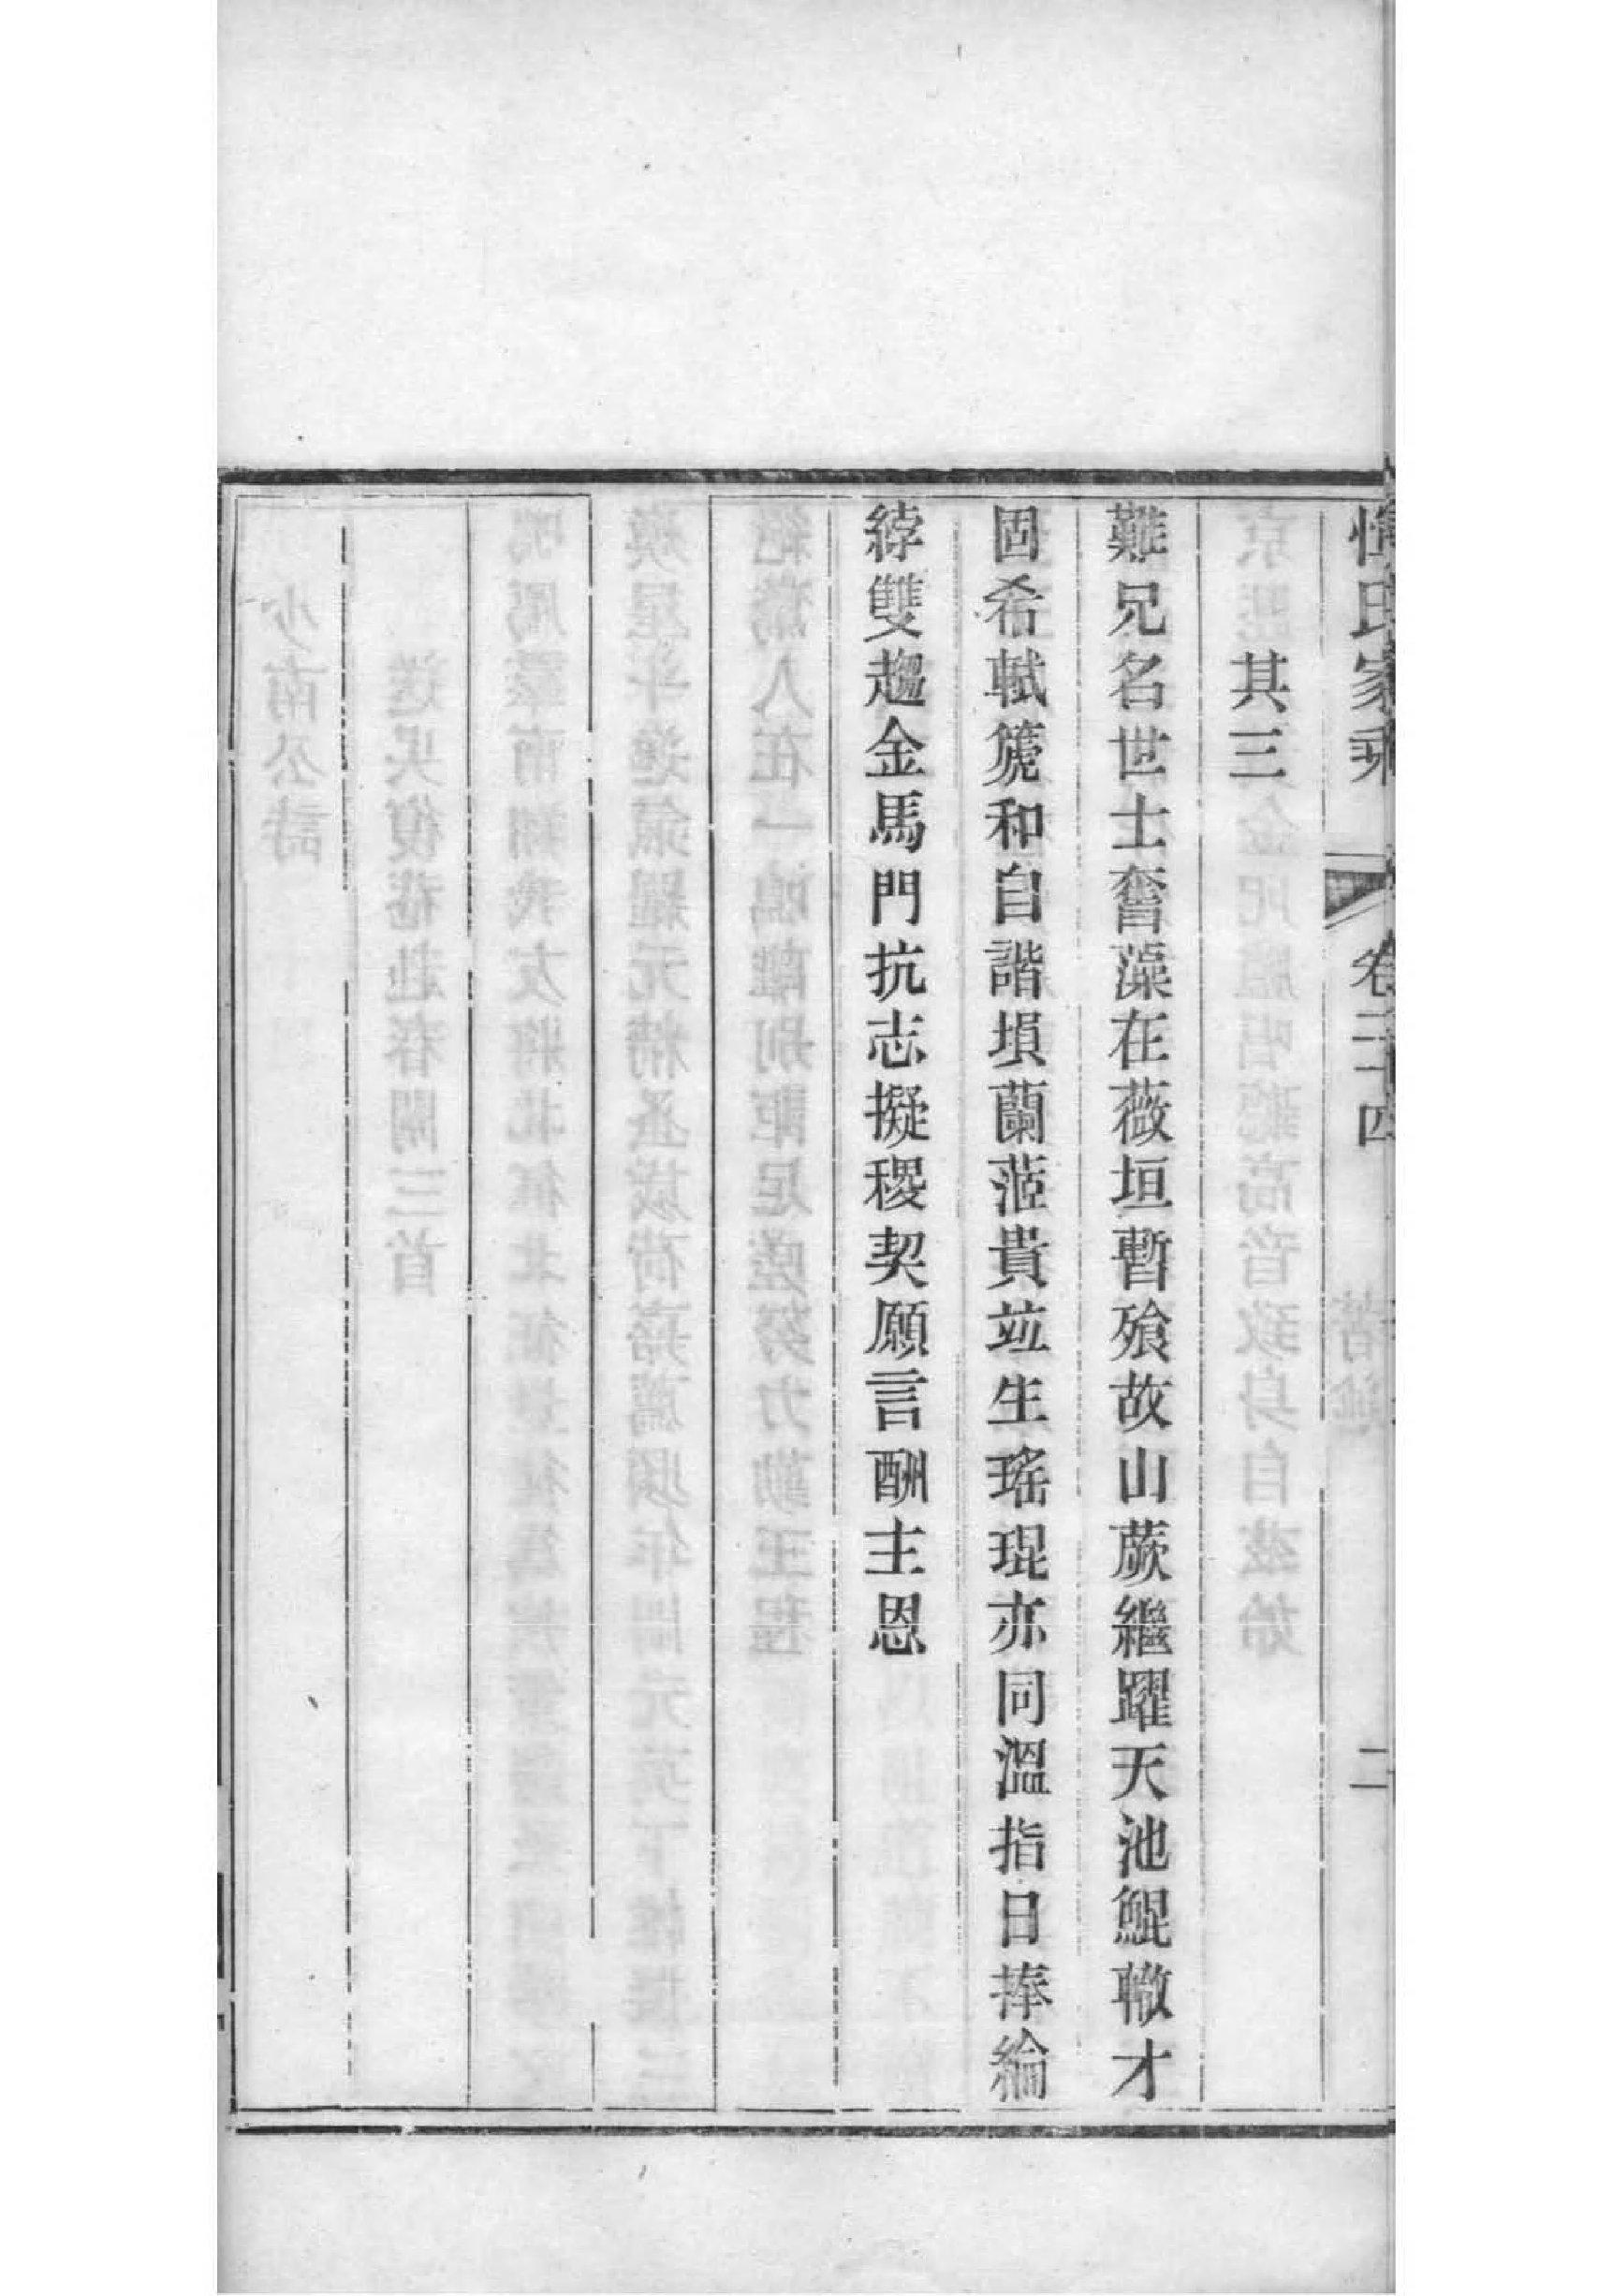 惲氏家乘 卷二十四 二
其三
難兄名世士奮藻在薇垣暫飱故山蕨繼躍天池鯤轍才
固希軾篪和自諧塤蘭茝貴竝生瑤琨亦同溫指日捧綸
綍雙趨金馬門抗志擬稷契願言酬主恩